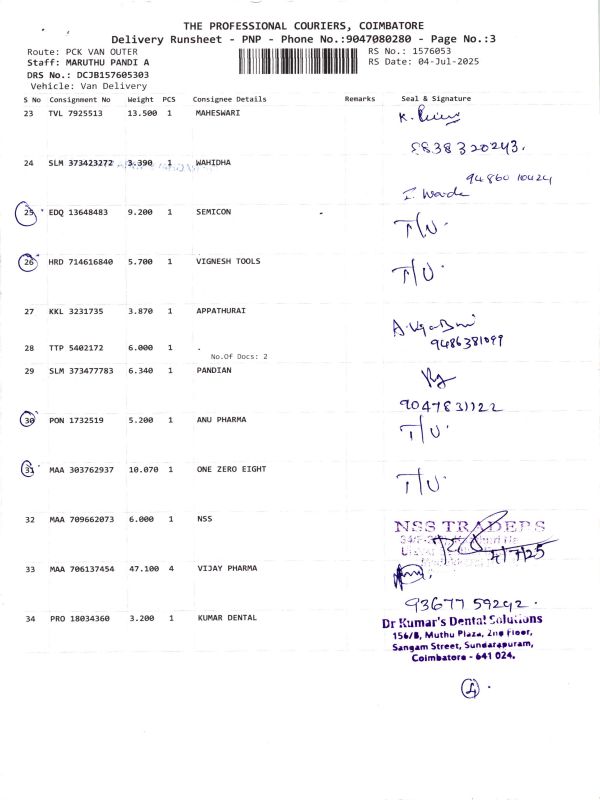 THE PROFESSIONAL COURIERS, COIMBATORE
Delivery Runsheet - PNP - Phone No.:9047080280 - Page No.:3
Route: PCK VAN OUTER RS No.: 1576053
Staff: MARUTHU PANDI A RS Date: 04-Jul-2025
DRS No.: DCJB157605303
Vehicle: Van Delivery
S No Consignment No Weight PCS Consignee Details Remarks Seal & Signature
23 TVL 7925513 13.500 1 MAHESWARI
8838320243.
24 SLM 373423272 3.390 1 WAHIDHA
94860 10424
25 EDQ 13648483 9.200 1 SEMICON T/U.
26 HRD 714616840 5.700 1 VIGNESH TOOLS T/U.
27 KKL 3231735 3.870 1 APPATHURAI
9486381099
28 TTP 5402172 6.000 1 .
No.Of Docs: 2
29 SLM 373477783 6.340 1 PANDIAN
9047831122
30 PON 1732519 5.200 1 ANU PHARMA T/U.
31 MAA 303762937 10.070 1 ONE ZERO EIGHT T/U.
32 MAA 709662073 6.000 1 NSS NSS TRADERS
4/7/25
33 MAA 706137454 47.100 4 VIJAY PHARMA
93677 59292.
34 PRO 18034360 3.200 1 KUMAR DENTAL
Dr Kumar's Dental Solutions
156/B, Muthu Plaza, 2nd Floor,
Sangam Street, Sundarapuram,
Coimbatore - 641 024.
4